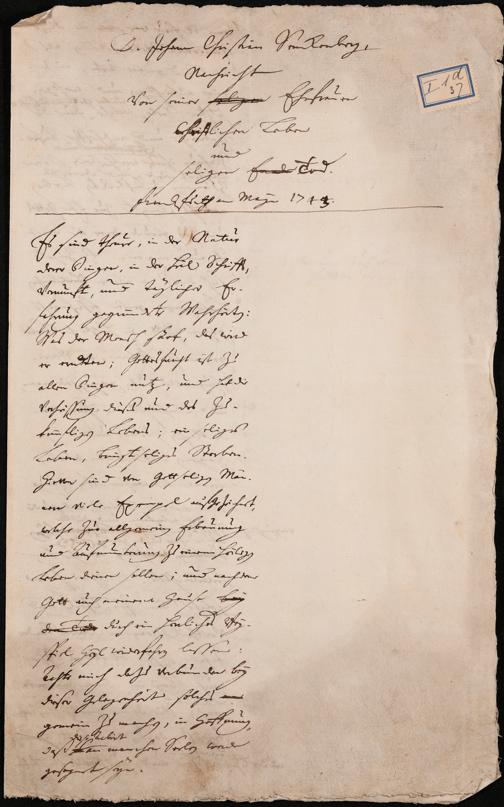 D. Johann Christian Senckenberg,
Nachricht
von seiner seligen Ehefrauen
christlichen Leben
und
seligen Ende Tod.
Franckfurth am Mayn 1743.
I 1d
37
Es sind theure, in der Natur
derer Dinge, in der Heil. Schrifft,
Vernunft, und täglicher Er-
fahrung gegründete Wahrheiten:
Was der Mensch säet, das wird
er erndten; Gottesfurcht ist zu
allen Dingen nutz, und hat die
Verheissung dieses und des Zu-
künftigen Lebens; ein seliges
Leben, bringt seliges Sterben.
Hievon sind von Gottseligen Män-
nern viele Exempel aufgezeichnet,
welche zur allgemeinen Erbauung
und Aufmunterung zu einem heiligen
Leben dienen sollen; und nachdem
Gott auch meinem Hause
durch ein herrliches Bey-
spiel Heyl wiederfahren lassen:
achte mich dazu verbunden bey
dieser Gelegenheit solches
gemein zu machen, in Hoffnung,
daß manchen Seelen werde
gesegnet seyn.